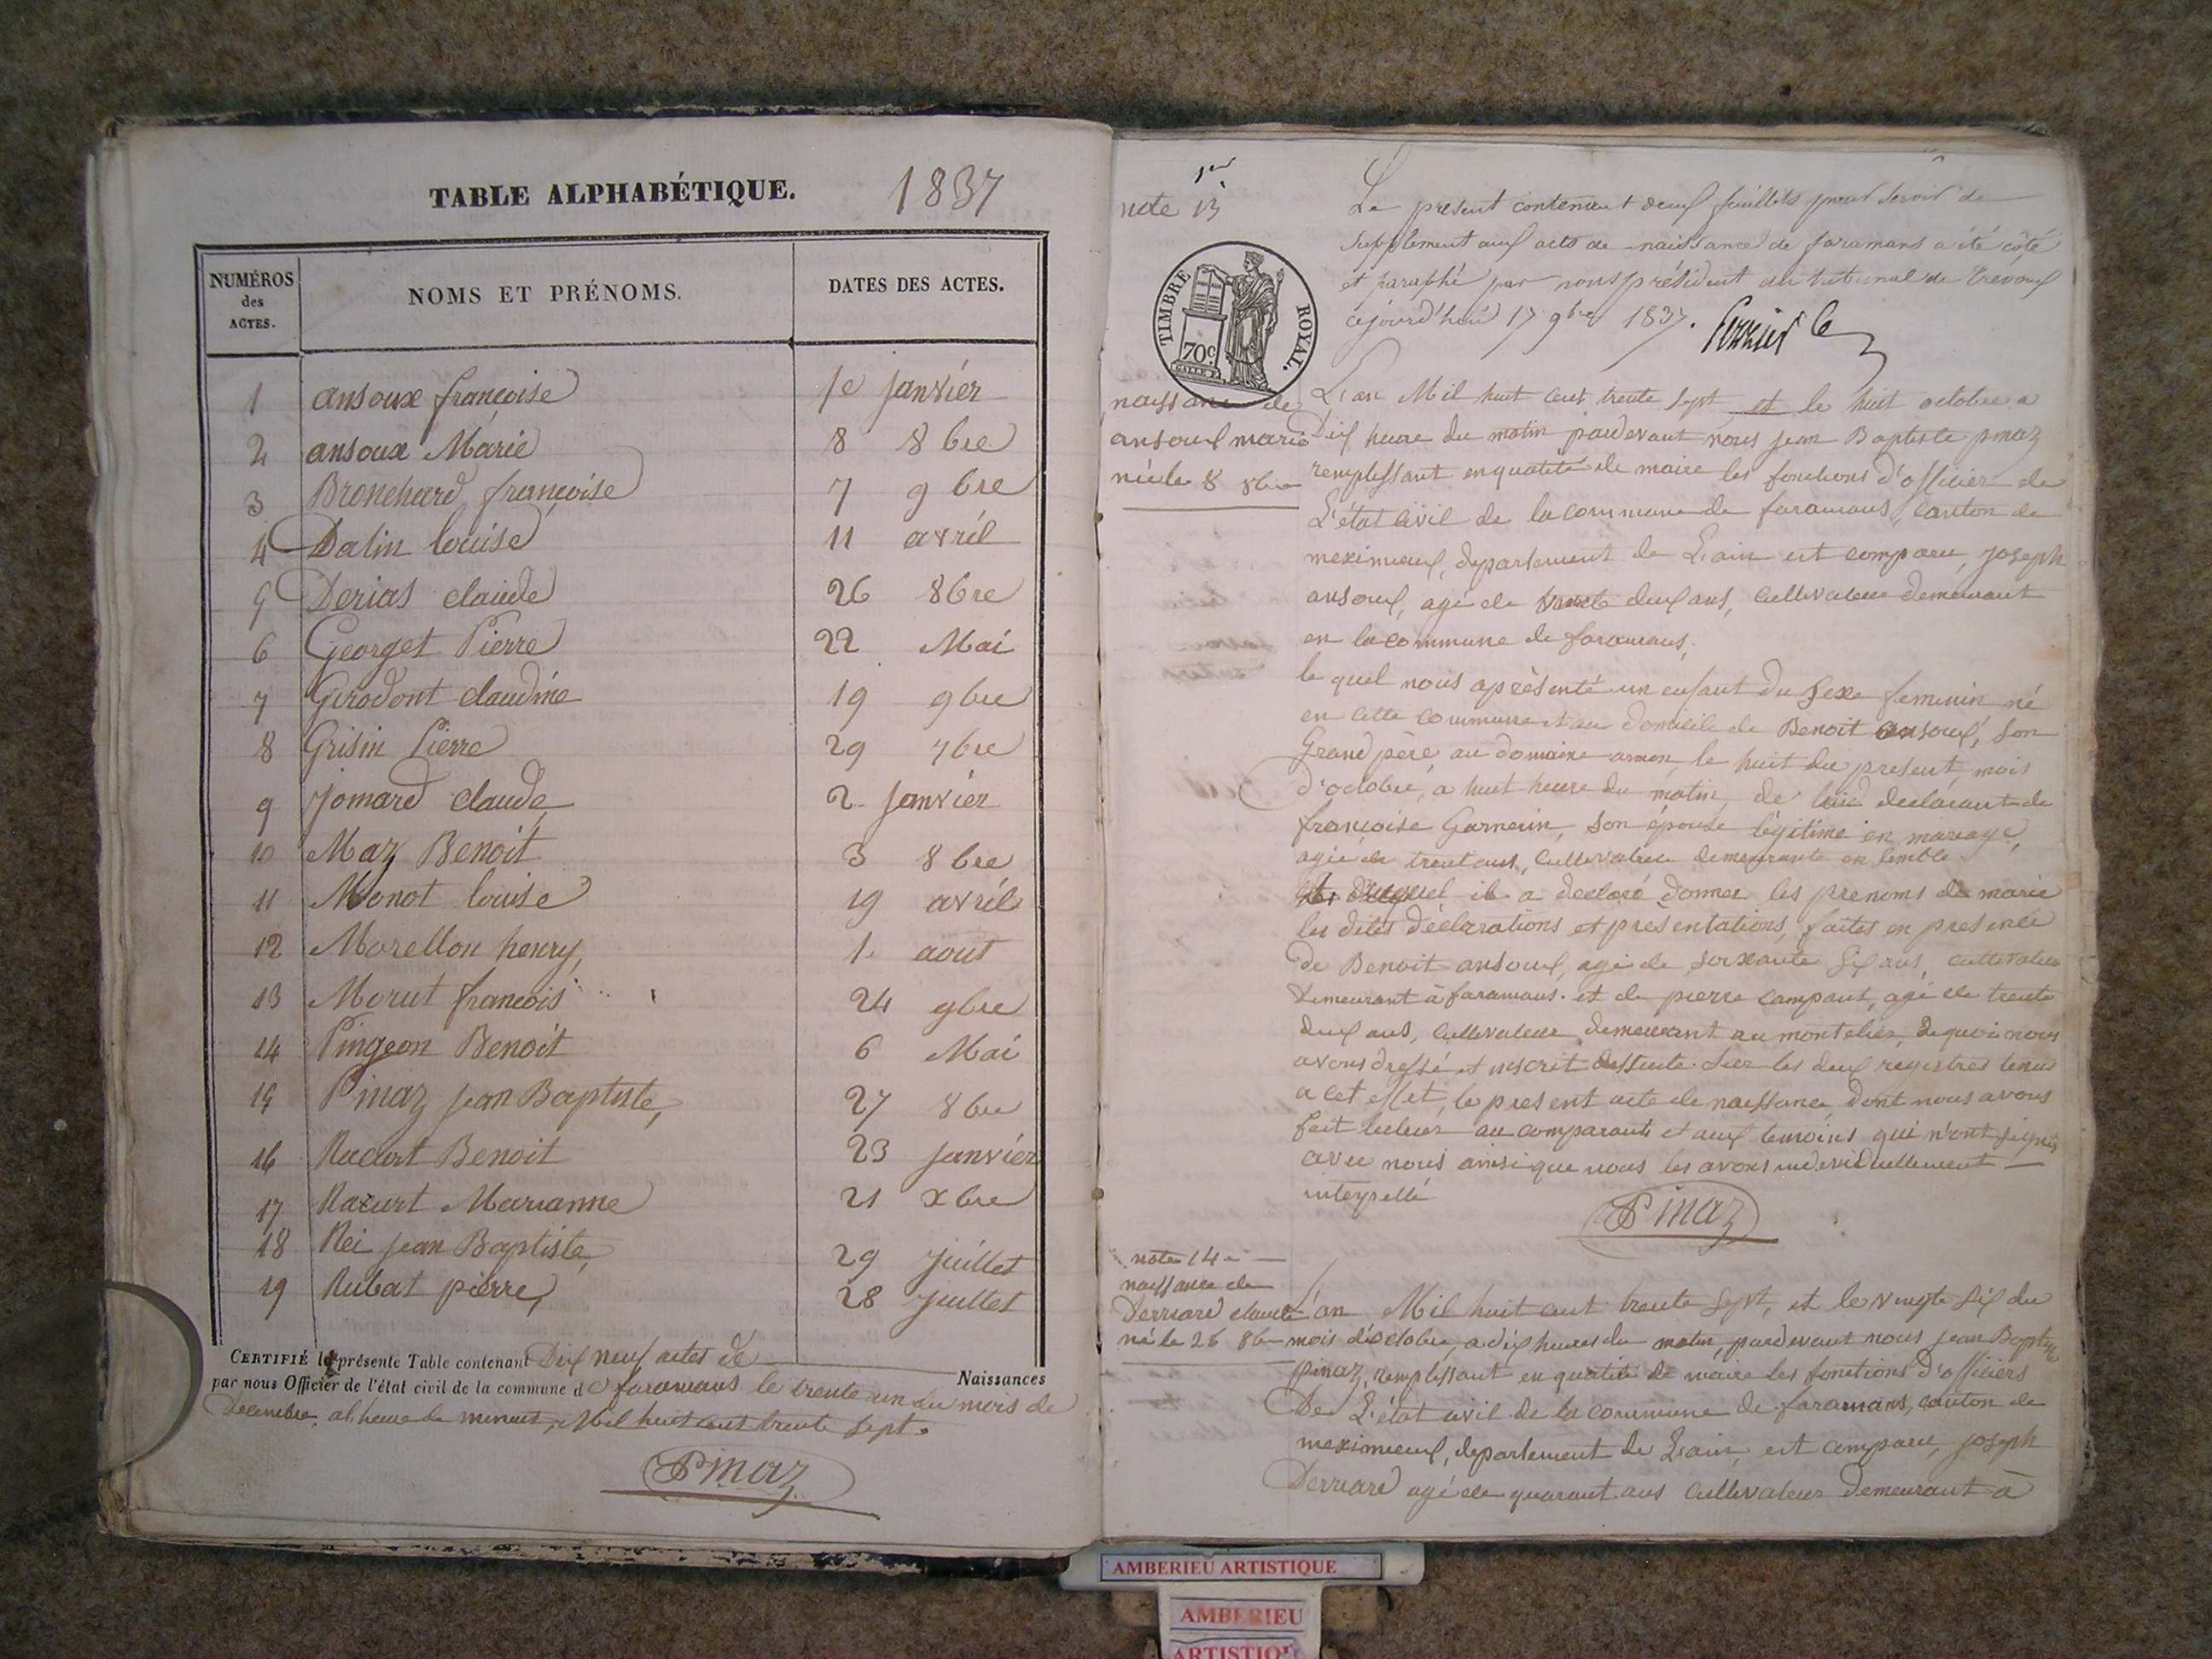 TABLE ALPHABÉTIQUE. 1837
NUMÉROS des ACTES. NOMS ET PRÉNOMS. DATES DES ACTES.
1 ansoux françoise 1e janvier
2 ansoux Marie 8 8bre
3 Bronchard françoise 7 9bre
4 Dalin louise 11 avril
5 Derias claude 26 8bre
6 Georget Pierre 22 Mai
7 Girodont claudine 19 9bre
8 Grisin Pierre 29 7bre
9 Jomard claude 2 janvier
10 Maz Benoit 3 8bre
11 Monot louise 19 avril
12 Morellon henry, 1. aout
13 Morut francois 24 9bre
14 Pingeon Benoit 6 Mai
15 Pinaz jean Baptiste, 27 8bre
16 Racurt Benoit 23 janvier
17 Racurt Marianne 21 xbre
18 Rei jean Baptiste, 29 juillet
19 Rubat pierre, 28 juillet
CERTIFIÉ la présente Table contenant Dix neuf actes de Naissances
par nous Officier de l'état civil de la commune de faramans le trente un du mois de
Decembre, a l heure de minuit, Mil huit cent trente sept.
Pinaz
1er
note 13
Le present contenant deux feuillets pour servir de
supplement aux acts de naissance de faramans a été côté
et paraphé par nous président du tribunal de Trevoux
cejourd'hui 17 9bre 1837.
TIMBRE ROYAL.
70c.
naissance de
ansoux marie
née le 8 8bre
L'an Mil huit cent trente sept et le huit octobre a
Dix heure du matin pardevant nous jean Baptiste pinaz
remplissant en quatité de maire les fonctions d'officier de
L'état civil de la commune de faramans, canton de
meximieux, departement de L'ain est comparu, joseph
ansoux, agé de trente deux ans, cultivateur demeurant
en la commune de faramans,
le quel nous a présenté un enfant du sexe feminin né
en cette commune et au domicile de Benoit ansoux, son
Grand père, au domaine armon, le huit du present mois
d'octobre, a huit heure du matin, de lui declarant de
françoise Garnerin, son épouse légitime en mariage,
agée de trent ans, cultivatrice demeurante en semble
duquel il a declaré donner les prenoms de marie
les dites déclarations et présentations, faites en presence
de Benoit ansoux, agé de soixante six ans, cultivateur
Demeurant à faramans. et de pierre campant, agé de trente
deux ans, cultivateur demeurant au montelier, de quoi nous
avons dressé et inscrit desuite sur les deux registres tenus
a cet effet, le present acte de naissance, dont nous avons
fait lecture au comparants et aux temoins qui n'ont signés
avec nous ainsi que nous les avons individuellement
interpellé
Pinaz
note 14e
naissance de
Derriard claude
né le 26 8bre
L'an Mil huit cent trente sept, et le vingte six du
mois d'octobre, a dix heures du matin, pardevant nous jean Baptiste
pinaz, remplissant en quatité de maire les fonctions d'officiers
De L'état civil de la commune de faramans, canton de
meximieux, departement de L'ain, est comparu, joseph
Derriard agé de quarant ans cultivateur demeurant à
AMBERIEU ARTISTIQUE
AMBERIEU
ARTISTIQU